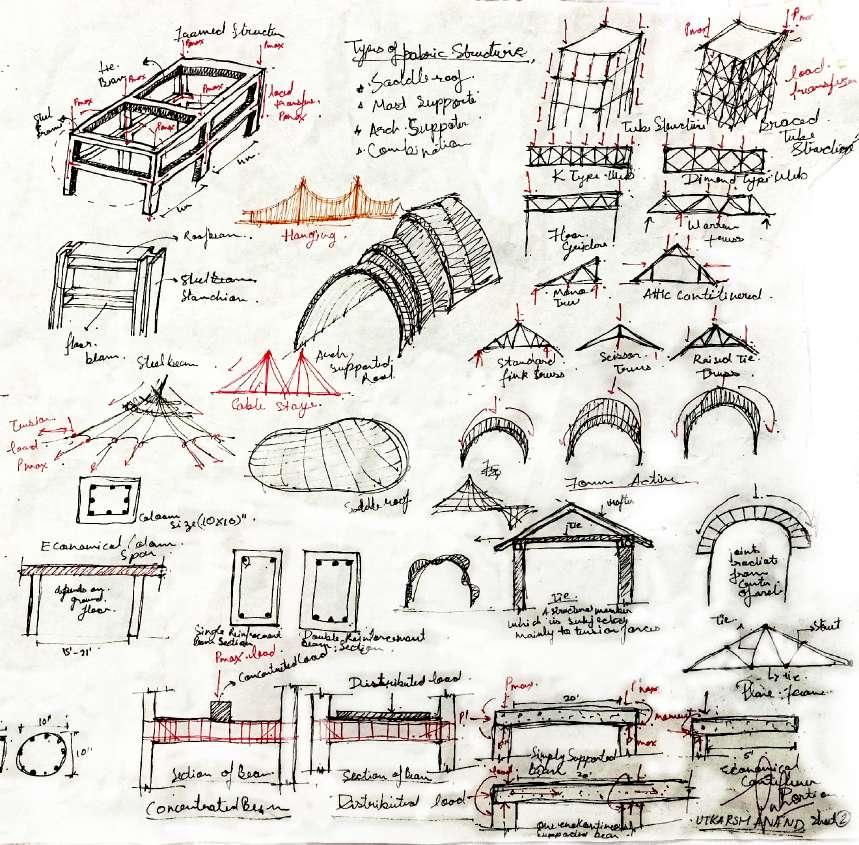 Framed Structur
Pmax
Pmax
Tie
Beam
Pmax
Pmax
Pmax
Pmax
load
Pmax
Types of fabric Structure,
Saddle roof
Mast Supporte
Arch Supporte
Combination
Pmax
Pmax
load
Tube Structure
Braced
Tube
Structure
K Type Web
Dimond type Web
Hanging
Floor
Warren
truss
Roof beam
Steel beam
Stanchian
floor
beam
Mono
Truss
Attic Cantilivered
Standard
fink truss
Scissor
Truss
Raised Tie
Truss
Steel beam
Arch
Supported
Roof
Cable Staye
Tension
load
Pmax
Saddle roof
Form Active
Column
Size (10x10)"
rafter
tie
Economical Colum
Span
depends on
ground
floor
15'-21'
Single Reinforcement
Beam Section
Double Reinforcement
Beam Section
Tie
A structural member
which is subjected
mainly to tension forces
joint
from
Tie
Strut
Tie
Plane frame
Pmax load
Concentrated load
Distributed load
Pmax
20'
Pmax
P1
moment
max
10"
10"
Section of beam
Concentrated Beam
Section of beam
Distributed load
Simply Supported
beam
load
20'
5'
Economical
Cantilever
Portion
UTKARSH ANAND Sheet 2